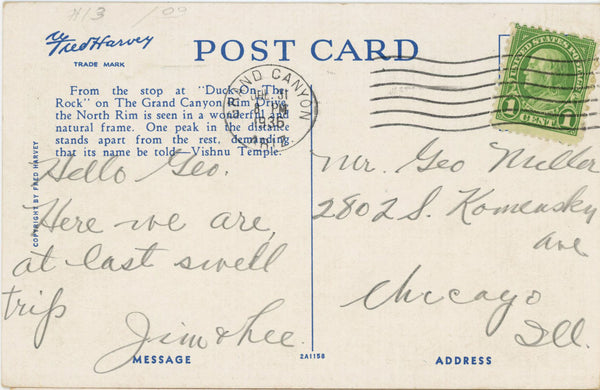 #13 /00
Fred Harvey
TRADE MARK
POST CARD
From the stop at "Duck-On-The-
Rock" on The Grand Canyon Rim Drive
the North Rim is seen in a wonderful and
natural frame. One peak in the distance
stands apart from the rest, demanding
that its name be told—Vishnu Temple.
COPYRIGHT BY FRED HARVEY
GRAND CANYON
JUL 31
8 PM
1936
ARIZ.
UNITED STATES POSTAGE
1 CENT 1
Hello Geo.
Here we are,
at last swell
trip
Jim & Lee.
Mr. Geo Miller
2802 S. Komensky
ave
Chicago
Ill.
MESSAGE
2A1158
ADDRESS